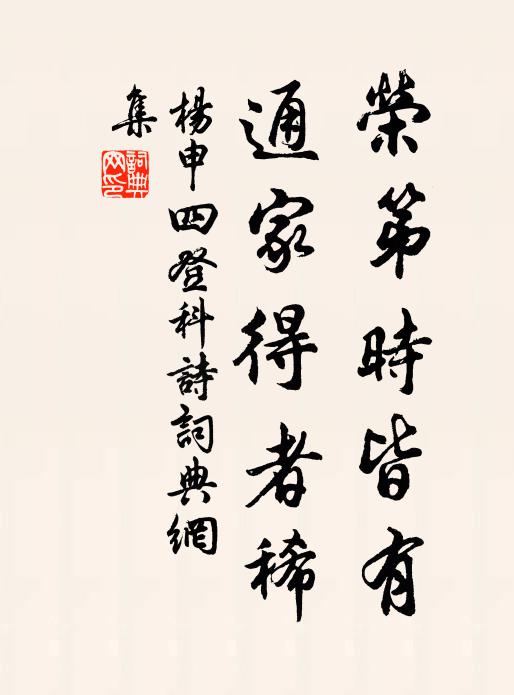 榮第時皆有
通家得者稀
楊申四登科詩詞典網
集
詞典網印